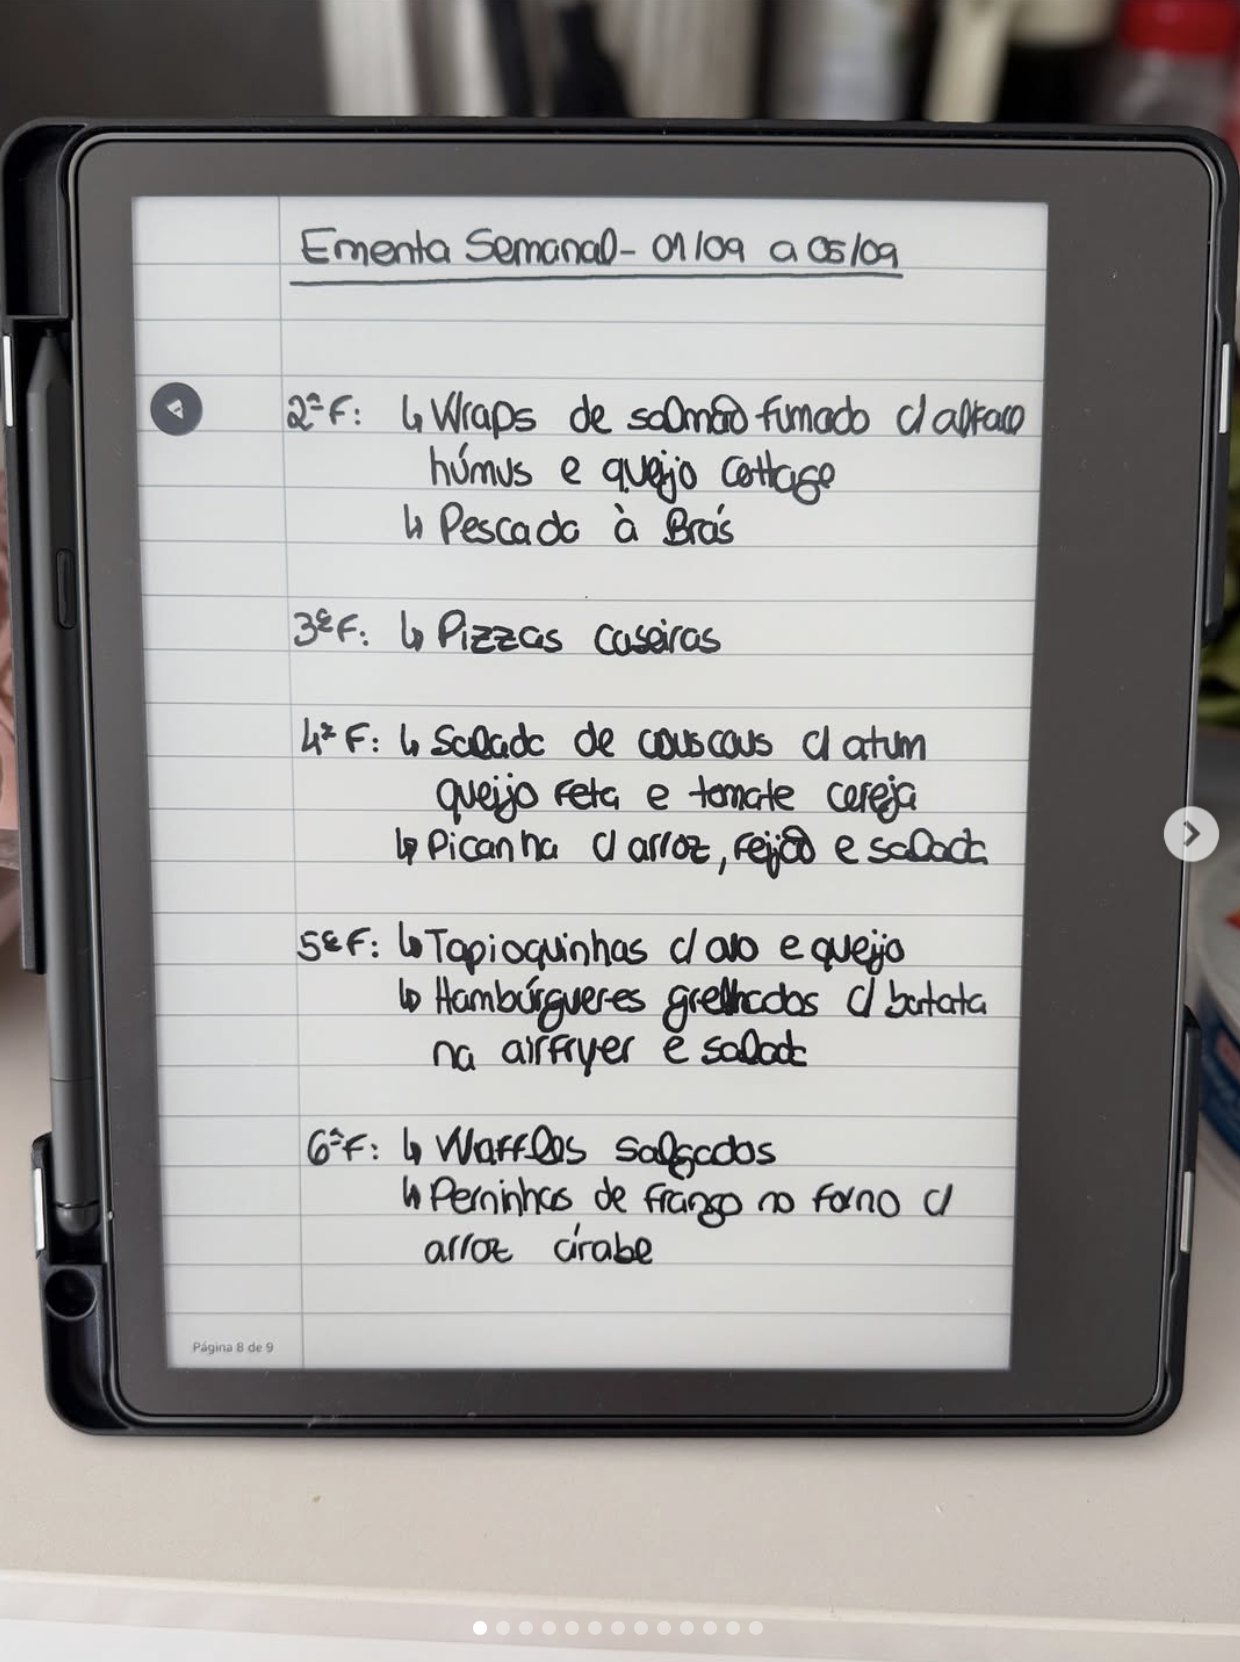 Ementa Semanal - 01/09 a 05/09
2ª F: ↳ Wraps de salmão fumado c/ alface
húmus e queijo cottage
↳ Pescada à Brás
3ª F: ↳ Pizzas caseiras
4ª F: ↳ Salada de couscous c/ atum
queijo feta e tomate cereja
↳ Picanha c/ arroz, feijão e salada
5ª F: ↳ Tapioquinhas c/ ovo e queijo
↳ Hambúrgueres grelhados c/ batata
na airfryer e salada
6ª F: ↳ Waffles salgados
↳ Perninhas de frango no forno c/
arroz árabe
Página 8 de 9